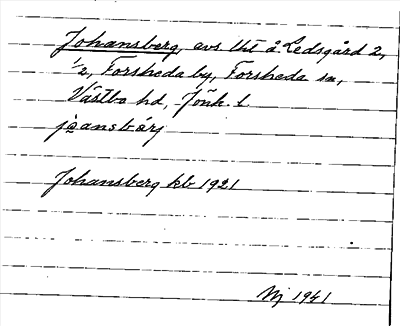 Johansberg, avs. lht å Ledsgård 2,
1/2, Forsheda by, Forsheda sn,
Västbo hd, Jönk. l
jo̱ansbärj
Johansberg kb 1921
1941